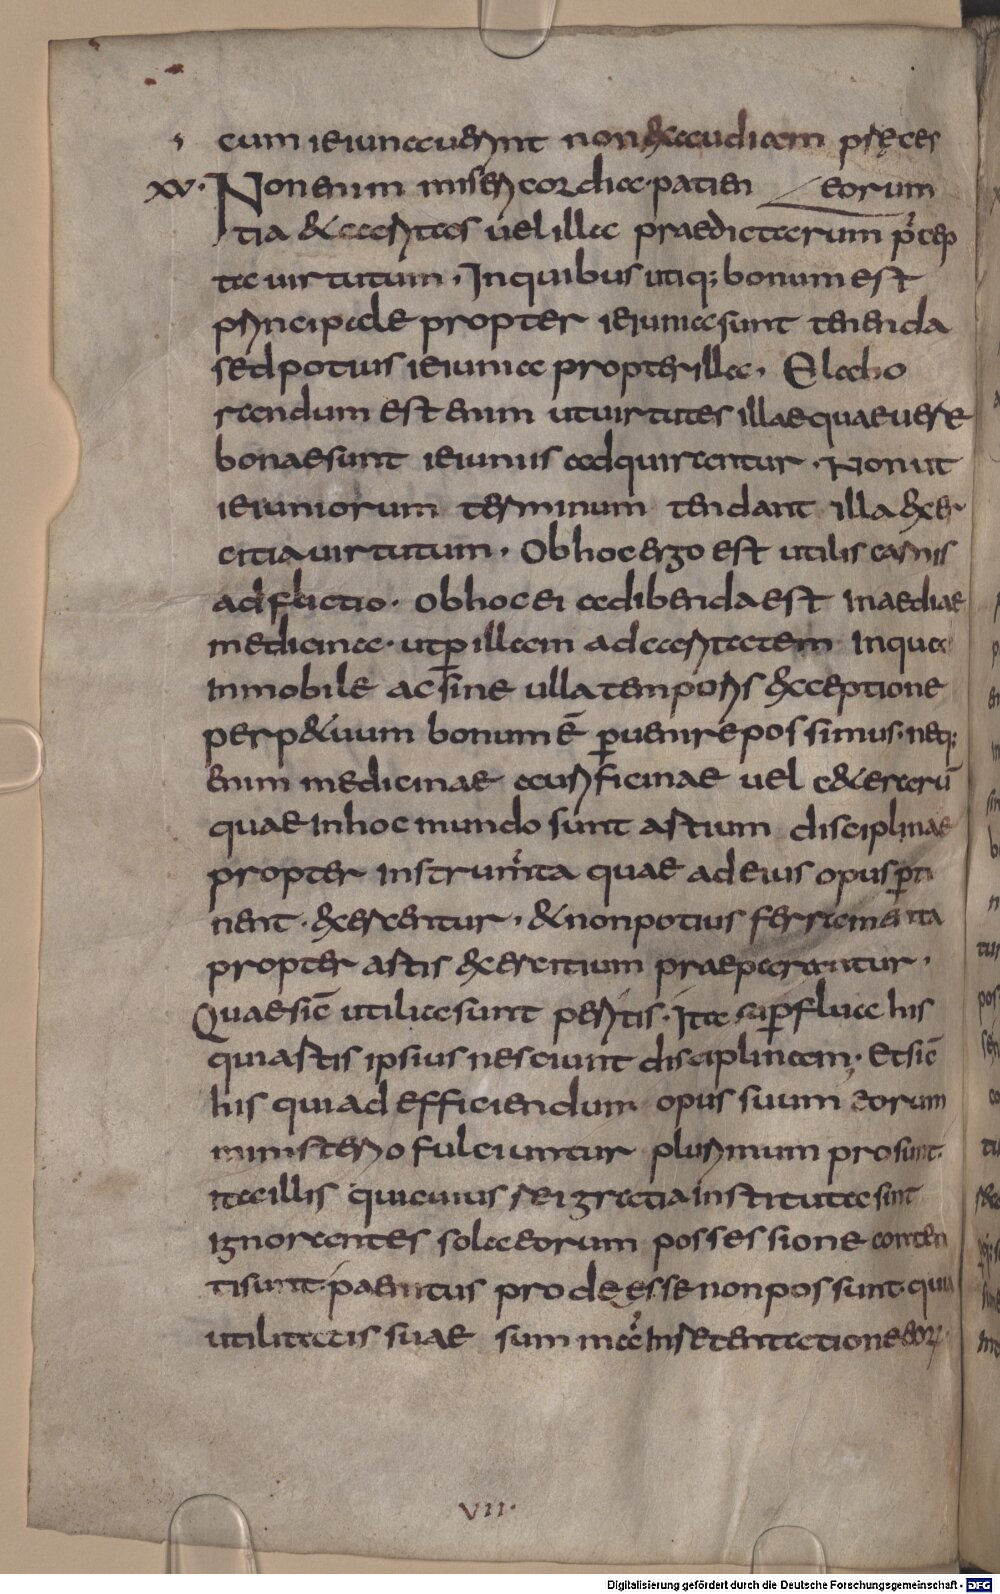 cum ieiunauerint non exaudiam pręces
xv. Non enim misericordia patien eorum
tia & caritas uel illa praedictarum p̄cep
ta uirtutum, In quibus utiq; bonum est
principale propter ieiunia sunt tenenda
sed potius ieiunia propter illa. Elabo
randum est enim ut uirtutes illae quae uere
bonae sunt ieiuniis adquirantur. Non ut
ieiuniorum terminum tendant illa exer
citia uirtutum. Ob hoc ergo est utilis carnis
adflictio. ob hoc ei adibenda est inaediae
medicina. ut ꝑ illam ad caritatem in qua
inmobile ac sine ulla temporis exceptione
perp&uum bonum ē ꝑuenire possimus. neq;
enim medicinae aurificinae uel c&erarū
quae in hoc mundo sunt artium disciplinae
propter instrum̄ta quae ad eius opus ꝑti
nent. exercentur, & non potius ferramenta
propter artis exercitium praeparantur.
Quae sic̄ utilia sunt peritis. Ita suꝑflua his
qui artis ipsius nesciunt disciplinam. Et sic̄
his qui ad efficiendum opus suum eorum
ministerio fulciuntur plurimum prosunt.
ita illis qui cuius rei gratia instituta sint
ignorantes sola eorum possessione conten
ti sunt. paenitus prodeesse non possunt. quia
utilitatis suae summā in retentatione eorꝝ
VII.
Digitalisierung gefördert durch die Deutsche Forschungsgemeinschaft - DFG